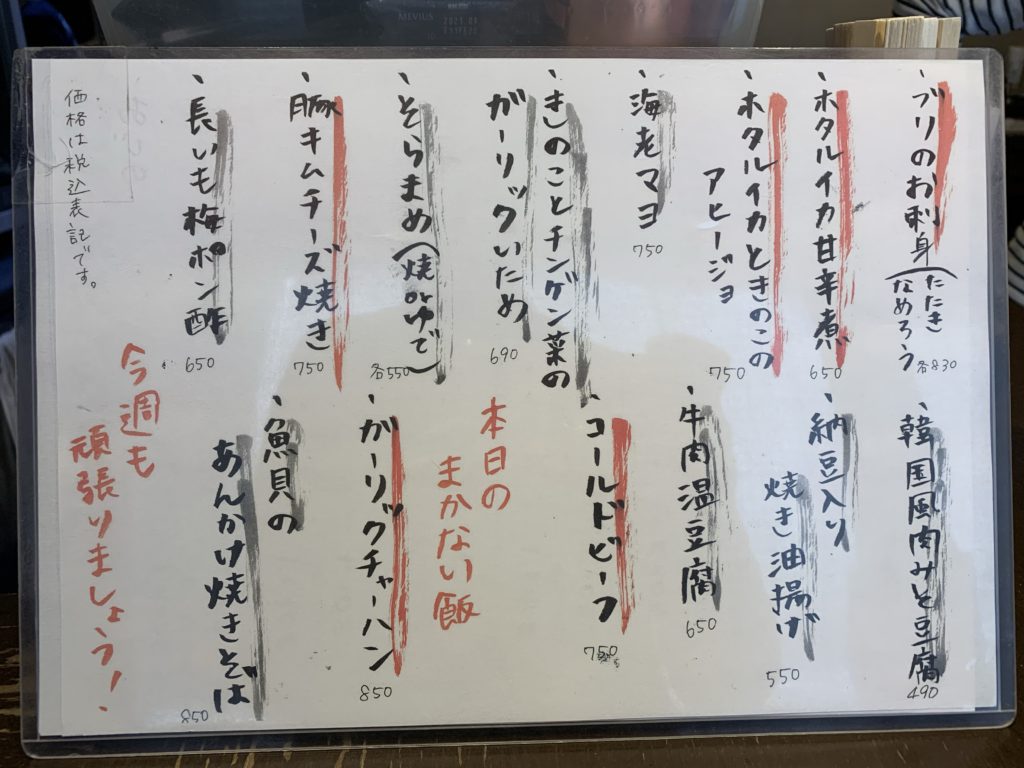 ブリのお刺身(たたき なめろう) 各830
ホタルイカ甘辛煮 650
ホタルイカときのこの
アヒージョ 750
海老マヨ 750
きのことチンゲン菜の
ガーリックいため 690
そらまめ(焼orゆで) 各550
豚キムチーズ焼き 750
長いも梅ポン酢 650
価格は税込表記です。
韓国風肉みそ豆腐 490
納豆入り
焼き油揚げ 550
牛肉温豆腐 650
コールドビーフ 750
本日の
まかない飯
ガーリックチャーハン 850
魚貝の
あんかけ焼きそば 850
今週も
頑張りましょう!
MEVIUS